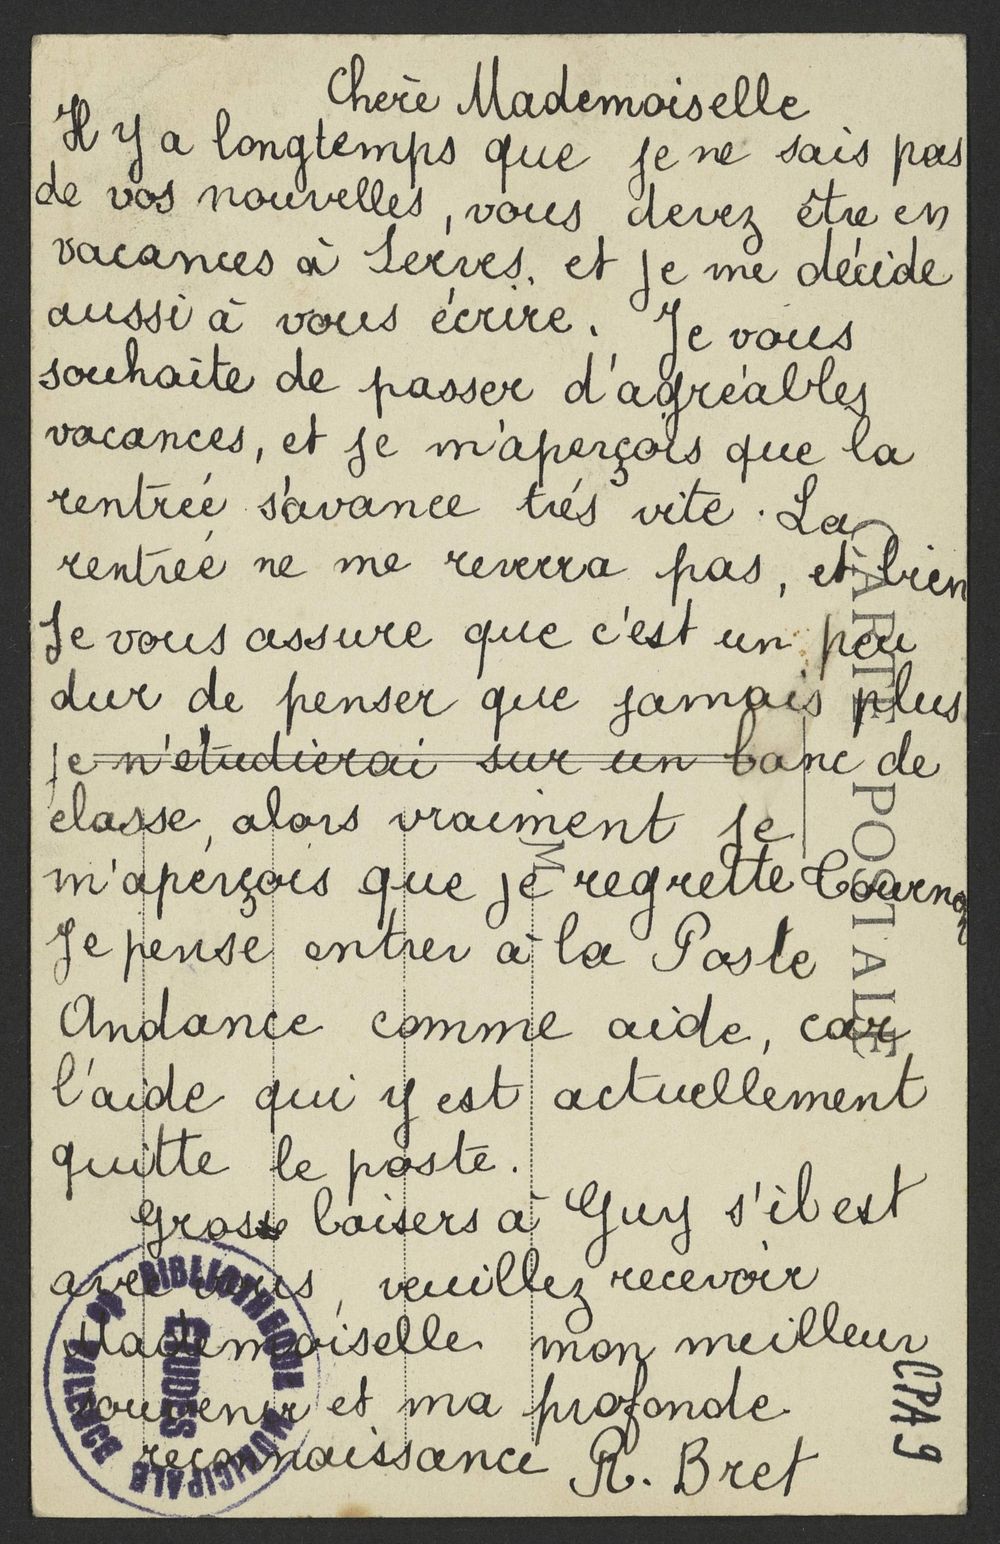 Chère Mademoiselle
Il y a longtemps que je ne sais pas
de vos nouvelles, vous devez être en
vacances à Serres, et je me décide
aussi à vous écrire. Je vous
souhaite de passer d'agréables
vacances, et je m'aperçois que la
rentrée s'avance trés vite. La
rentrée ne me reverra pas, et bien
Je vous assure que c'est un peu
dur de penser que jamais plus
je n'étudierai sur un banc de
classe, alors vraiment je
m'aperçois que je regrette Tournon
Je pense entrer à la Poste
Andance comme aide, car
l'aide qui y est actuellement
quitte le poste.
Gross baisers à Guy s'il est
avec vous, veuillez recevoir
Mademoiselle mon meilleur
souvenir et ma profonde
reconnaissance R. Bret
CARTE POSTALE
M
BIBLIOTHEQUE MUNICIPALE DE VALENCE
ETUDES
CPA 9